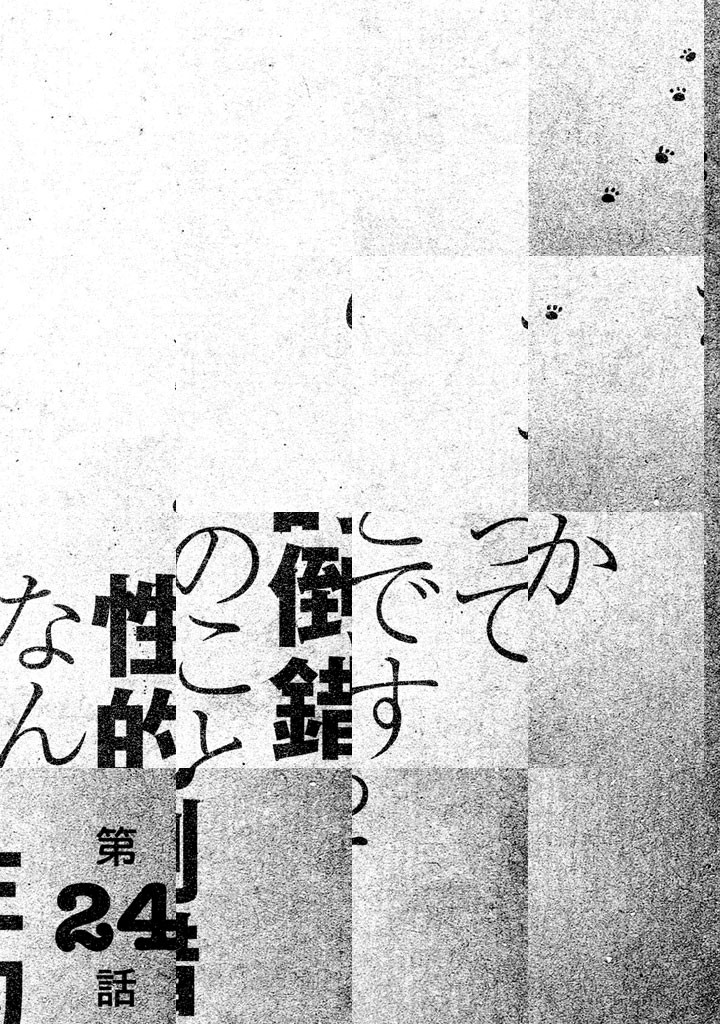 か
って
です
倒錯
のこと
性的
なん
第24話